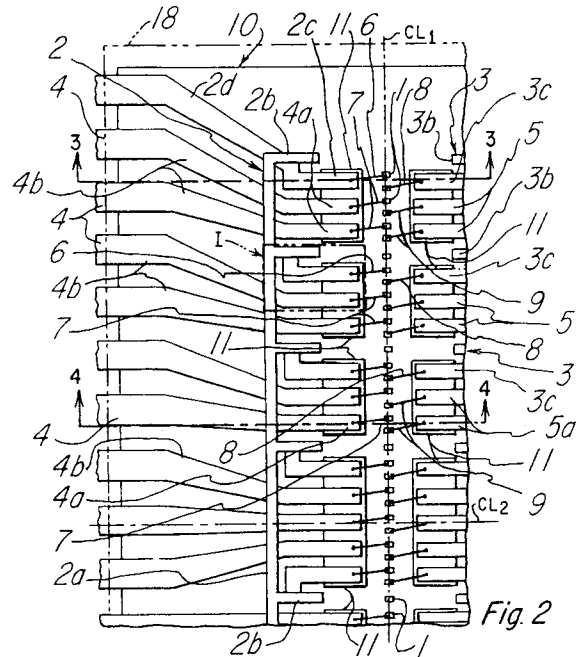 18 10 2c 11 CL1 6
2 2d 2b 4a 7 8 3 3c
4 3b 5
3 3
4b 3b
4 11
I
6 3c
4b 9
7 5
11 8
3
4 4
3c
4 8 5a
4b 11
4a 9
7 CL2
2a
2b 11 1 Fig. 2